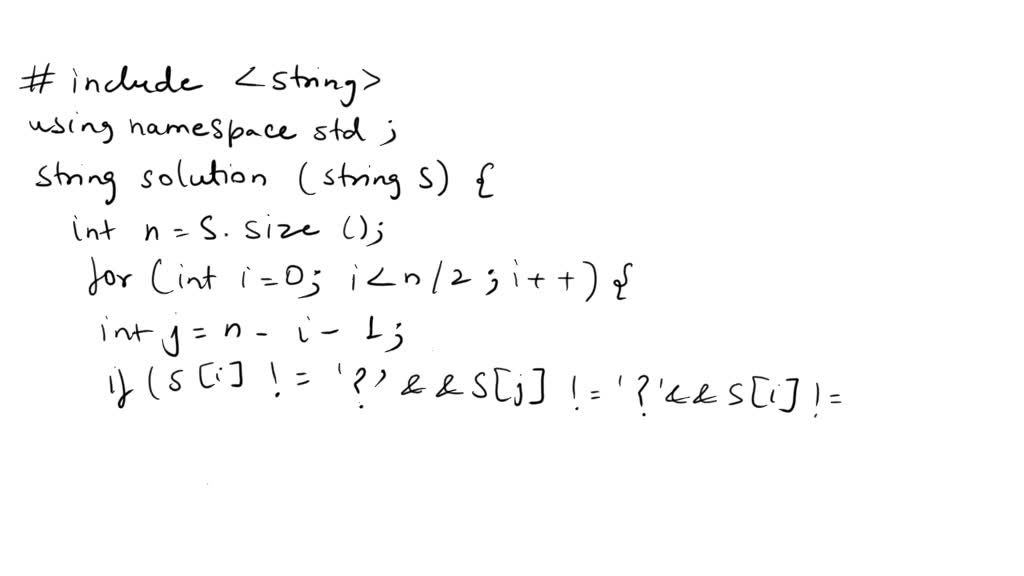 # include <string>
using namespace std ;
string solution (string S) {
int n = S. size ();
for (int i = 0; i < n / 2 ; i + + ) {
int j = n - i - 1;
if ( S [i] ! = '?' && S[j] ! = '?' && S[i] ! =